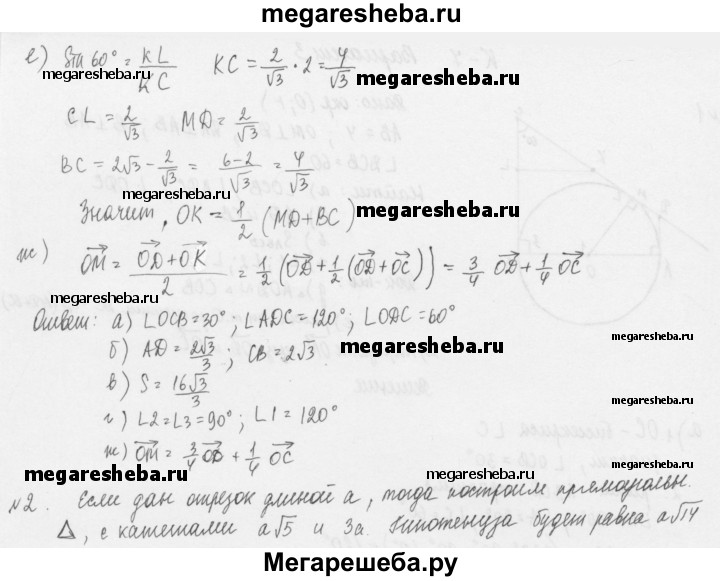 megaresheba.com
е) Sin 60° = KL/KC KC = 2/√3 · 2 = 4/√3
megaresheba.com
megaresheba.com
CL = 2/√3 MD = 2/√3
BC = 2√3 - 2/√3 = (6-2)/√3 = 4/√3
megaresheba.com
Значит, OK = 1/2 (MD + BC)
megaresheba.com
ж) OM = (OD + OK)/2 = 1/2 (OD + 1/2 (OD + OC)) = 3/4 OD + 1/4 OC
megaresheba.com
Ответ: а) ∠OCB = 30°; ∠ADC = 120°; ∠ODC = 60°
megaresheba.com
б) AD = 2√3/3; CB = 2√3
megaresheba.com
в) S = 16√3/3
megaresheba.com
г) ∠2 = ∠3 = 90°; ∠1 = 120°
ж) OM = 3/4 OD + 1/4 OC
megaresheba.com
megaresheba.com
megaresheba.com
№2. Если дан отрезок длиной a, тогда построим прямоугольн.
△, с катетами a√5 и 3a. Гипотенуза будет равна a√14
Мегарешеба.ру